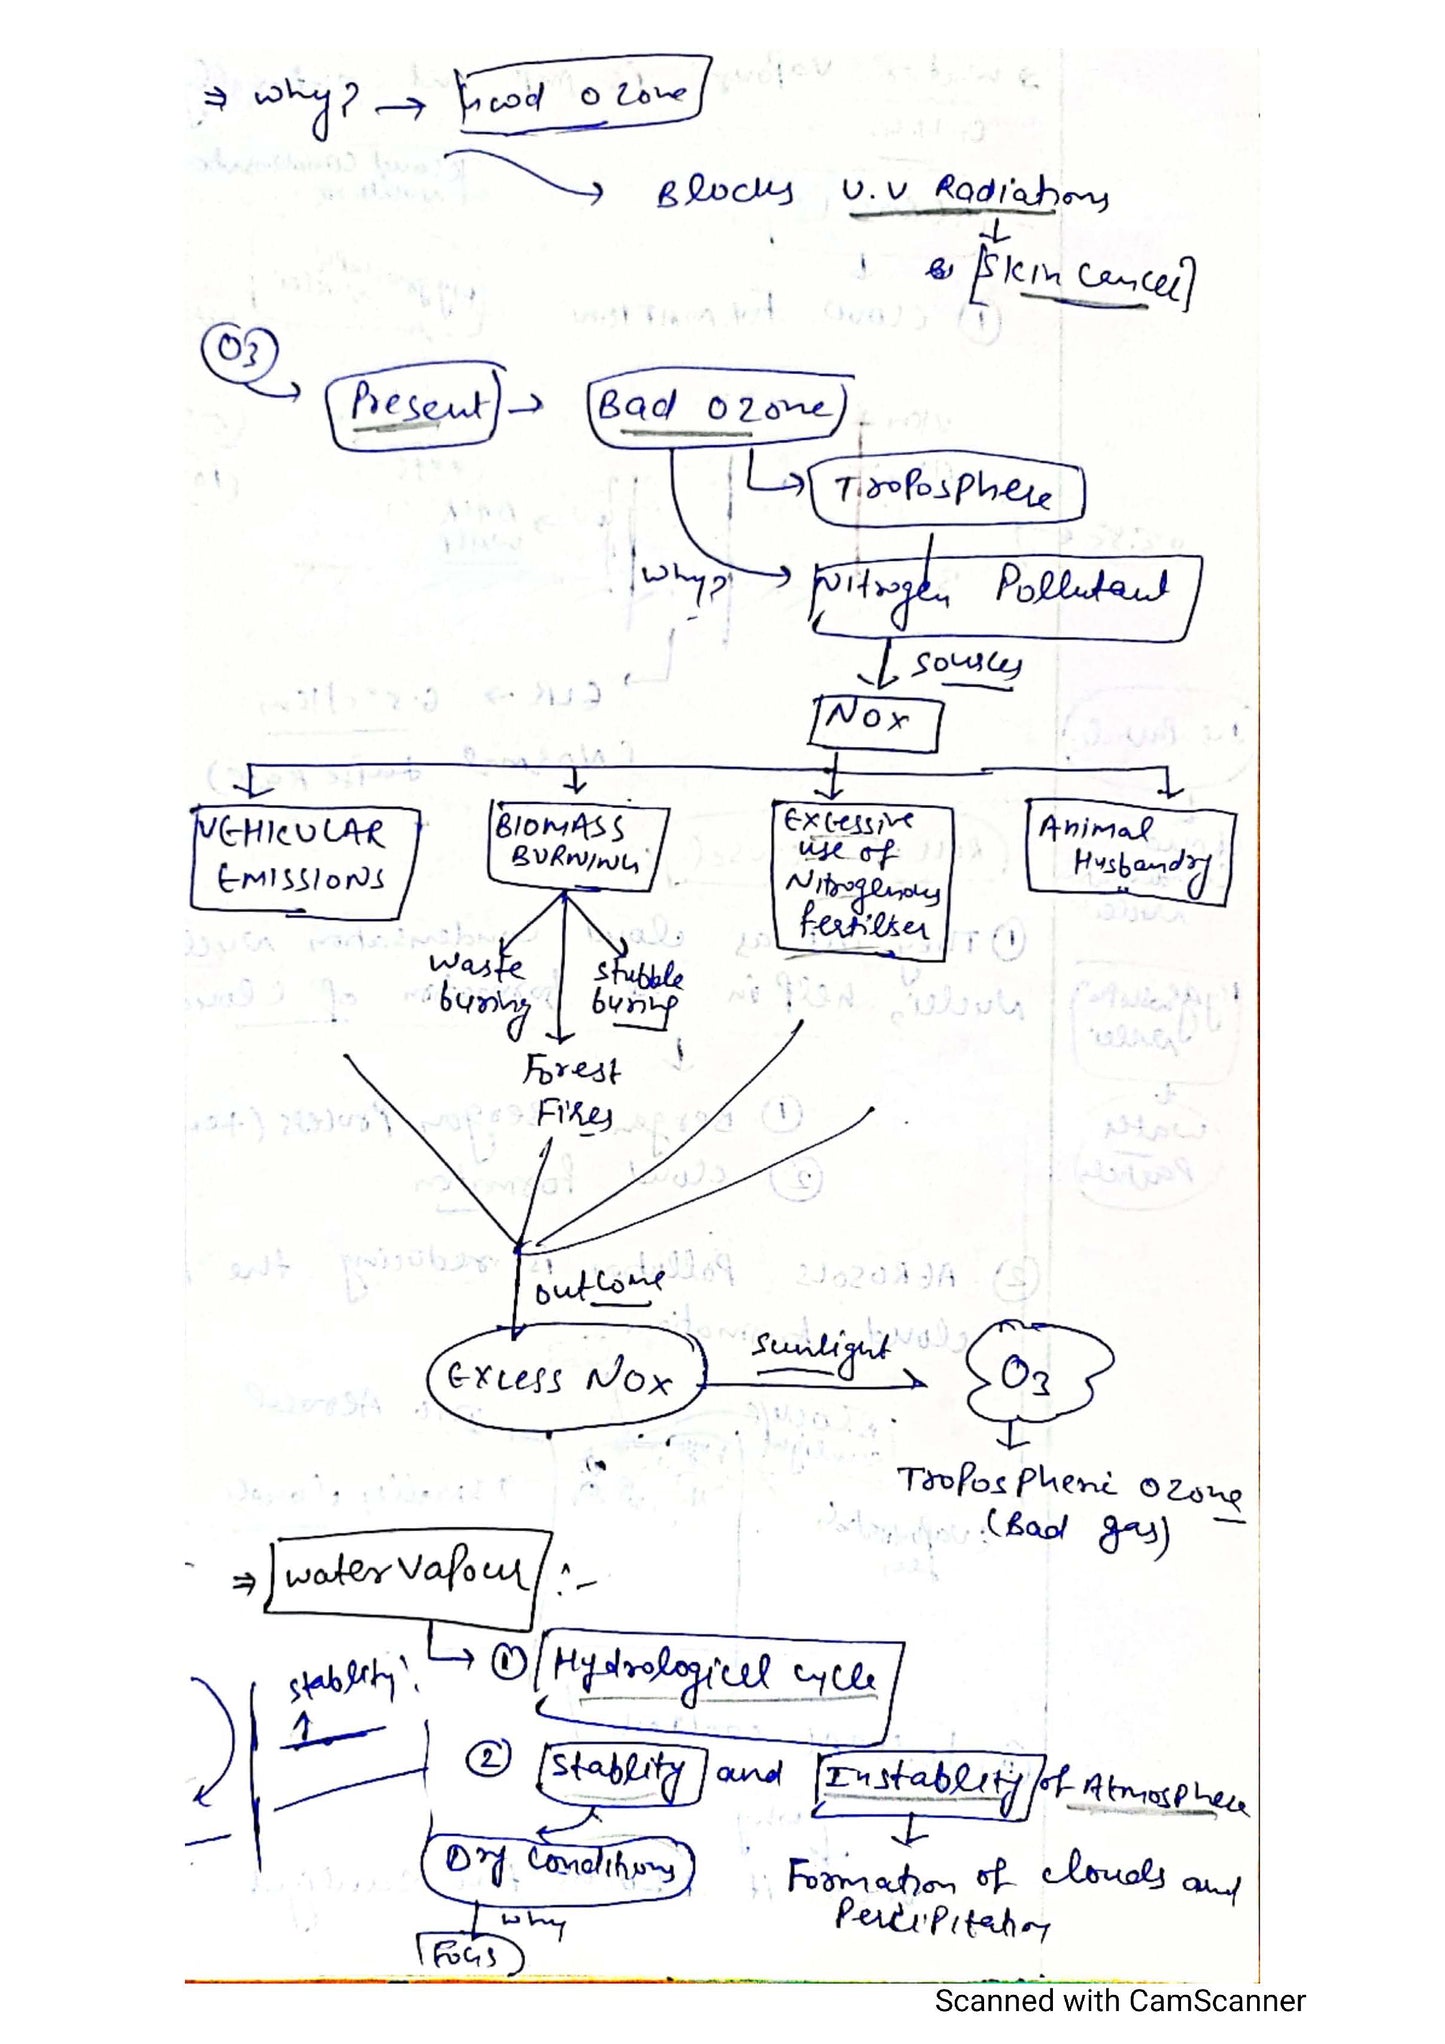 ⇒ why? → Good Ozone
Blocks U.V Radiations
[Skin Cancel]
O3
Present → Bad Ozone
Troposphere
why?
Nitrogen Pollutant
sources
NOX
VEHICULAR
EMISSIONS
BIOMASS
BURNING
Excessive
use of
Nitrogenous
fertilser
Animal
Husbandry
waste
buring
stubble
buring
Forest
Fires
outcome
Excess NOX
sunlight
O3
Tropospheric Ozone
(Bad gas)
⇒ water vapour :-
① Hydrological cycle
stablity!
↑
② Stablity and Instablity of Atmosphere
Dry Conditions
Formation of clouds and
Percipitation
why
FOGS
Scanned with CamScanner